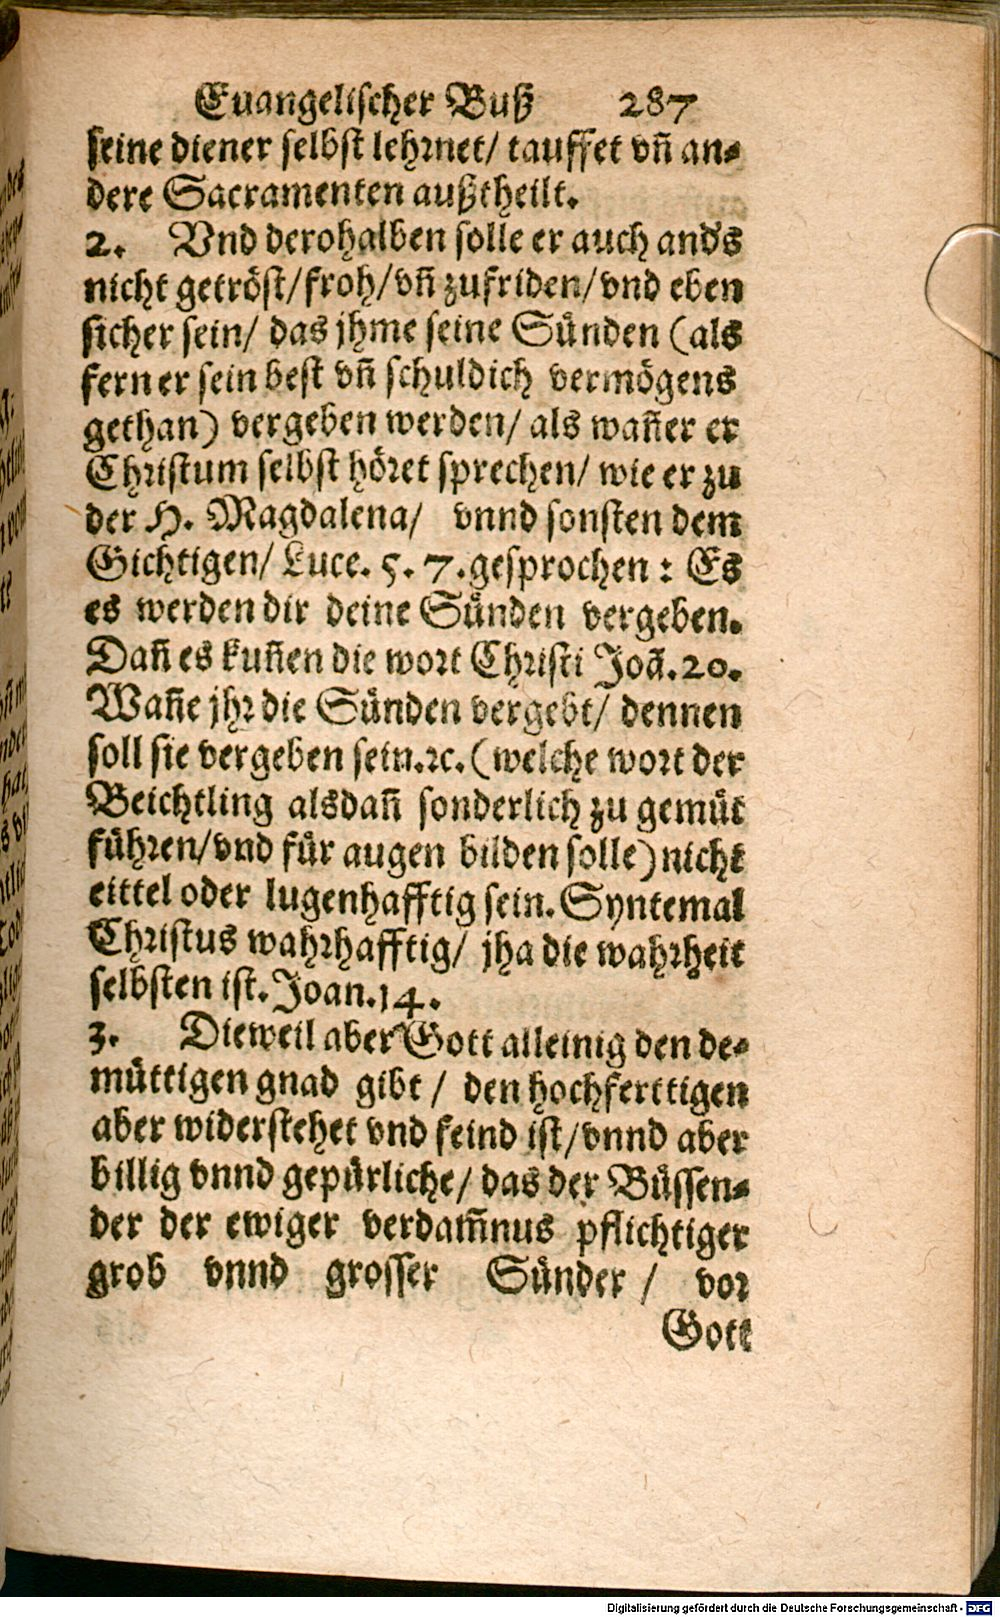 Euangelischer Buß 287
seine diener selbst lehrnet/ tauffet vñ an-
dere Sacramenten außtheilt.
2. Vnd derohalben solle er auch and's
nicht getröst/froh/vñ zufriden/vnd eben
sicher sein/ das jhme seine Sünden (als
fern er sein best vñ schuldich vermögens
gethan) vergeben werden/ als wañer er
Christum selbst höret sprechen/ wie er zu
der H. Magdalena/ vnnd sonsten dem
Gichtigen/ Luce. 5. 7. gesprochen : Es
es werden dir deine Sünden vergeben.
Dañ es kuñen die wort Christi Joã. 20.
Wañe jhr die Sünden vergebt/ dennen
soll sie vergeben sein.ꝛc. (welche wort der
Beichtling alsdañ sonderlich zu gemüt
führen/vnd für augen bilden solle) nicht
eittel oder lugenhafftig sein. Syntemal
Christus wahrhafftig/ jha die wahrheit
selbsten ist. Joan. 14.
3. Dieweil aber Gott alleinig den de-
müttigen gnad gibt / den hochferttigen
aber widerstehet vnd feind ist/vnnd aber
billig vnnd gepürliche/ das der Büssen-
der der ewiger verdam̃nus pflichtiger
grob vnnd grosser Sünder / vor
Gott
Digitalisierung gefördert durch die Deutsche Forschungsgemeinschaft - DFG